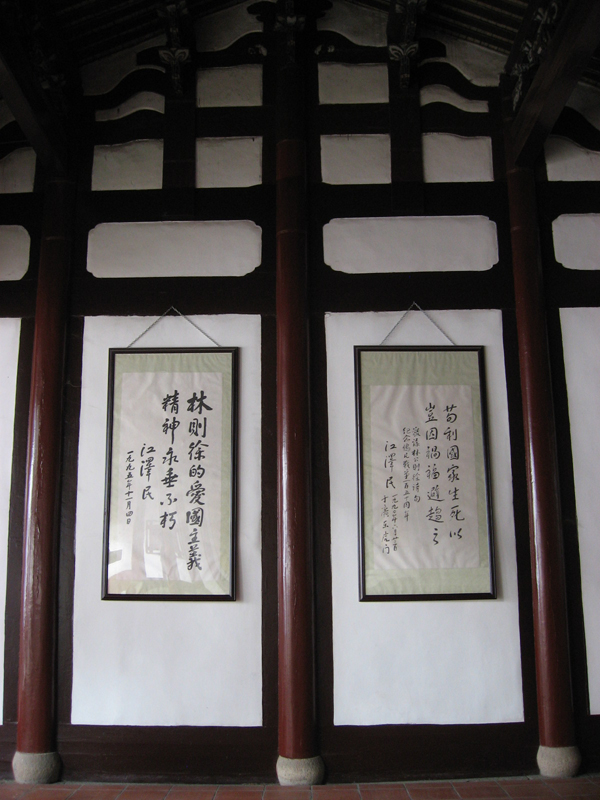 林則徐的愛國主義
精神永垂不朽
江澤民
一九九五年十一月四日
苟利國家生死以
豈因禍福避趨之
江澤民